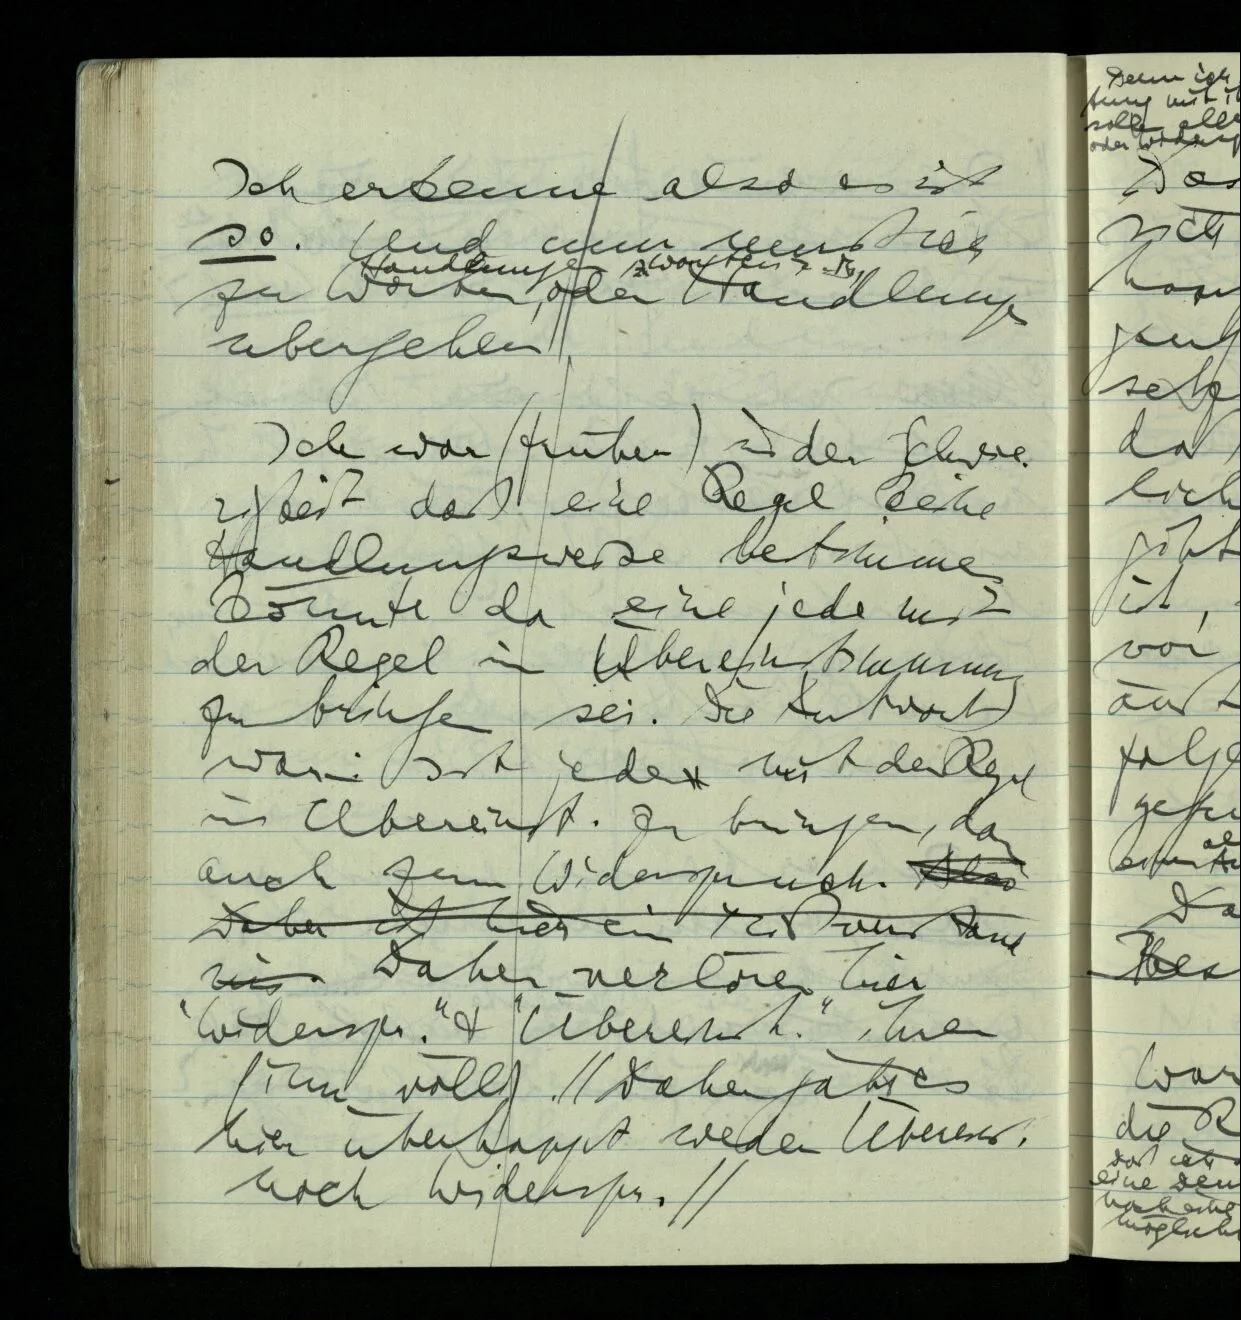 Ich erkenne also es ist
so. Und nun muß ich
Handlungen
zu Worten, oder Handlungen
übergehen.
Ich war (früher) in der Schwie-
rigkeit daß eine Regel keine
Handlungsweise bestimmen
könnte da eine jede mit
der Regel in Übereinstimmung
zu bringen sei. Die Antwort
war: Ist jede mit der Regel
in Übereinst. zu bringen, dan
auch zum Widerspruch. Also
Daher ist hier ein
Daher verlören hier
"Widerspr." & "Übereinst." ihren
Sinn völlig. // Daher gäbe es
hier überhaupt weder Übereins.
noch Widerspr. //
Denn ich
tung mit i
soll alle
oder Widersp
Das
sich
da
lich
gibt
ist,
vor
folge
Da
War
die R
daß ich
eine Deu
möglich